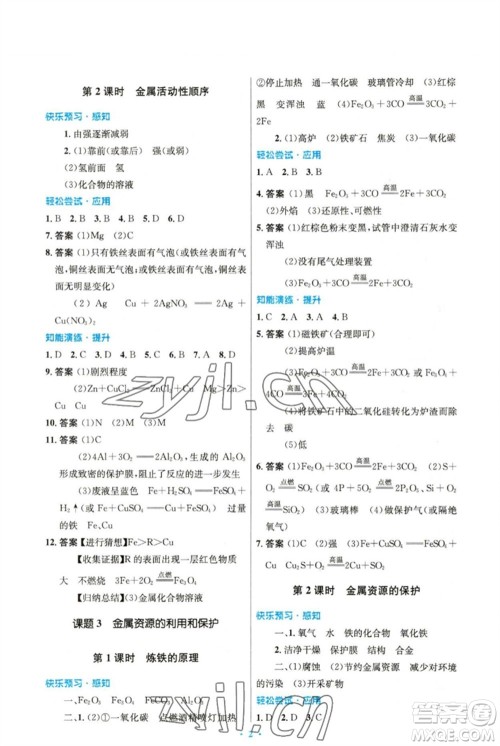 第2课时　金属活动性顺序
快乐预习·感知
1.由强逐渐减弱
2.(1)靠前(或前面)　强
(2)氢前面　氢
(3)化合物的溶液
轻松尝试·应用
1. B　2. B　3. D　4. C　5. D　6. D
7. 答案 (1)Mg　(2)C
8. 答案 (1)只有铁丝表面有气泡(或铁丝表面有气泡,铜丝表面无气泡;或铁丝表面有气泡,铜丝表面无明显变化)
(2)Ag　Cu + 2AgNO₃ ══ 2Ag + Cu(NO₃)₂
知能演练·提升
1. D　2. C　3. C　4. D　5. B　6. B　7. D　8. D
9. 答案 (1)剧烈程度
(2)Zn+CuCl₂ ══ ZnCl₂+Cu
Cu
10. 答案 (1)N　(2)M　(3)M
11. 答案 (1)C
(2)4Al + 3O₂ ══ 2Al₂O₃
形成致密的保护膜,阻止了反应的进行
(3)废液呈蓝色　Fe + H₂SO₄ ══ FeSO₄ + H₂↑(或 Fe + CuSO₄ ══ Cu + FeSO₄)
过量的铁　Fe、Cu
12. 答案 【进行猜想】Fe>R>Cu
【收集证据】R的表面出现一层红色物质　大　不燃烧　3Fe+2O₂ 点燃══ Fe₃O₄
【归纳总结】(3)金属化合物溶液
课题3　金属资源的利用和保护
第1课时　炼铁的原理
快乐预习·感知
二、1. (2)①一氧化碳　点燃酒精喷灯加热
②停止加热　通一氧化碳　玻璃管冷却　(3)红棕　黑　变浑浊　蓝　(4)Fe₂O₃+3CO 高温══ 3CO₂+2Fe
2. (1)高炉　(2)铁矿石　焦炭　(3)一氧化碳
轻松尝试·应用
1. A　2. B　3. B
4. 答案 (1)黑　Fe₂O₃+3CO 高温══ 2Fe+3CO₂
(2)外焰　(3)变浑浊
5. 答案 (1)红棕色粉末变黑,试管中澄清石灰水变浑浊
(2)没有尾气处理装置
(3)Fe₂O₃+3CO 高温══ 2Fe+3CO₂
知能演练·提升
1. C　2. A　3. C　4. C
5. 答案 (1)磁铁矿(合理即可)
(2)提高炉温
(3)Fe₂O₃ + 3CO 高温══ 2Fe + 3CO₂
(4)将铁矿石中的二氧化硅转化为炉渣而除去
(5)低
6. 答案 (1)Fe₂O₃+3CO 高温══ 2Fe+3CO₂
(2)S+O₂ 点燃══ SO₂(或 4P+5O₂ 点燃══ 2P₂O₅或 Si+O₂ 点燃══SiO₂)　(3)玻璃棒　(4)作保护气(或隔绝氧气)
7. 答案 (1)Fe₂O₃+3CO 高温══ 2Fe+3CO₂
(2)CuSO₄　FeSO₄
第2课时　金属资源的保护
快乐预习·感知
一、1. 氧气　水　铁的化合物　氧化铁
2. 洁净干燥　保护膜　结构　合金
二、(1)腐蚀　(2)节约金属资源　减少对环境的污染　(3)开采矿物
轻松尝试·应用
1. D　2. D　3. C　4. A　5. B
2